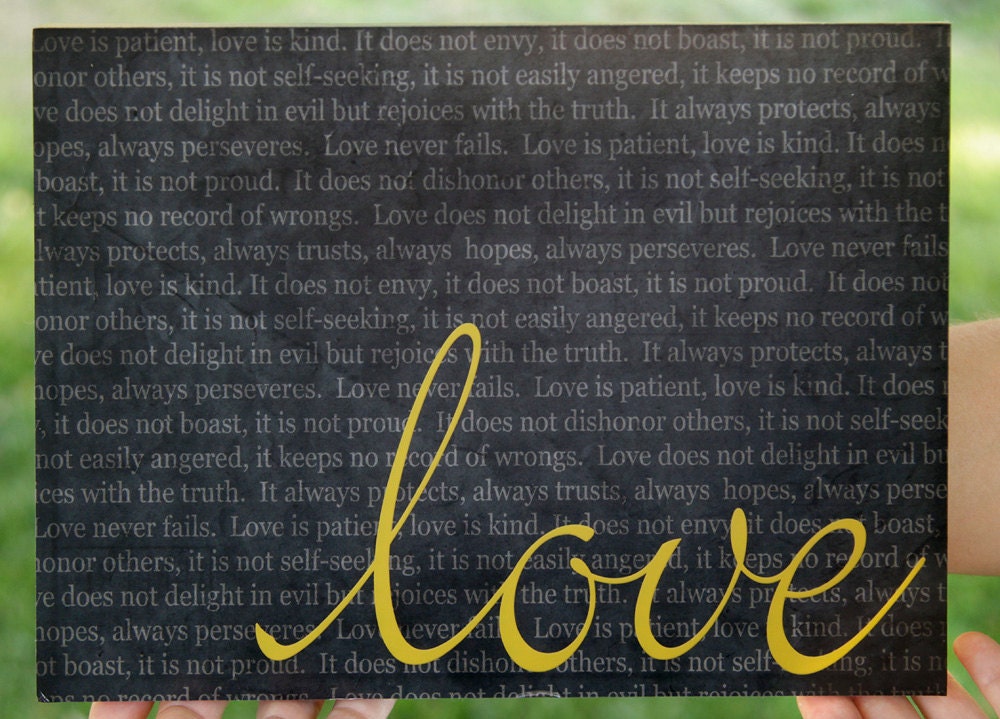 Love is patient, love is kind. It does not envy, it does not boast, it is not proud.
onor others, it is not self-seeking, it is not easily angered, it keeps no record of w
ve does not delight in evil but rejoices with the truth. It always protects, always
opes, always perseveres. Love never fails. Love is patient, love is kind. It does n
boast, it is not proud. It does not dishonor others, it is not self-seeking, it is not
t keeps no record of wrongs. Love does not delight in evil but rejoices with the t
lways protects, always trusts, always hopes, always perseveres. Love never fails
tient, love is kind. It does not envy, it does not boast, it is not proud. It does not
onor others, it is not self-seeking, it is not easily angered, it keeps no record of w
ve does not delight in evil but rejoices with the truth. It always protects, always t
hopes, always perseveres. Love never fails. Love is patient, love is kind. It does
, it does not boast, it is not proud. It does not dishonor others, it is not self-seek
not easily angered, it keeps no record of wrongs. Love does not delight in evil bu
ices with the truth. It always protects, always trusts, always hopes, always perse
Love never fails. Love is patient, love is kind. It does not envy, it does not boast,
honor others, it is not self-seeking, it is not easily angered, it keeps no record of w
ve does not delight in evil but rejoices with the truth. It always protects, always t
hopes, always perseveres. Love never fails. Love is patient, love is kind. It does
ot boast, it is not proud. It does not dishonor others, it is not self-seeking, it is n
ps no record of wrongs. Love does not delight in evil but rejoices with the truth
love